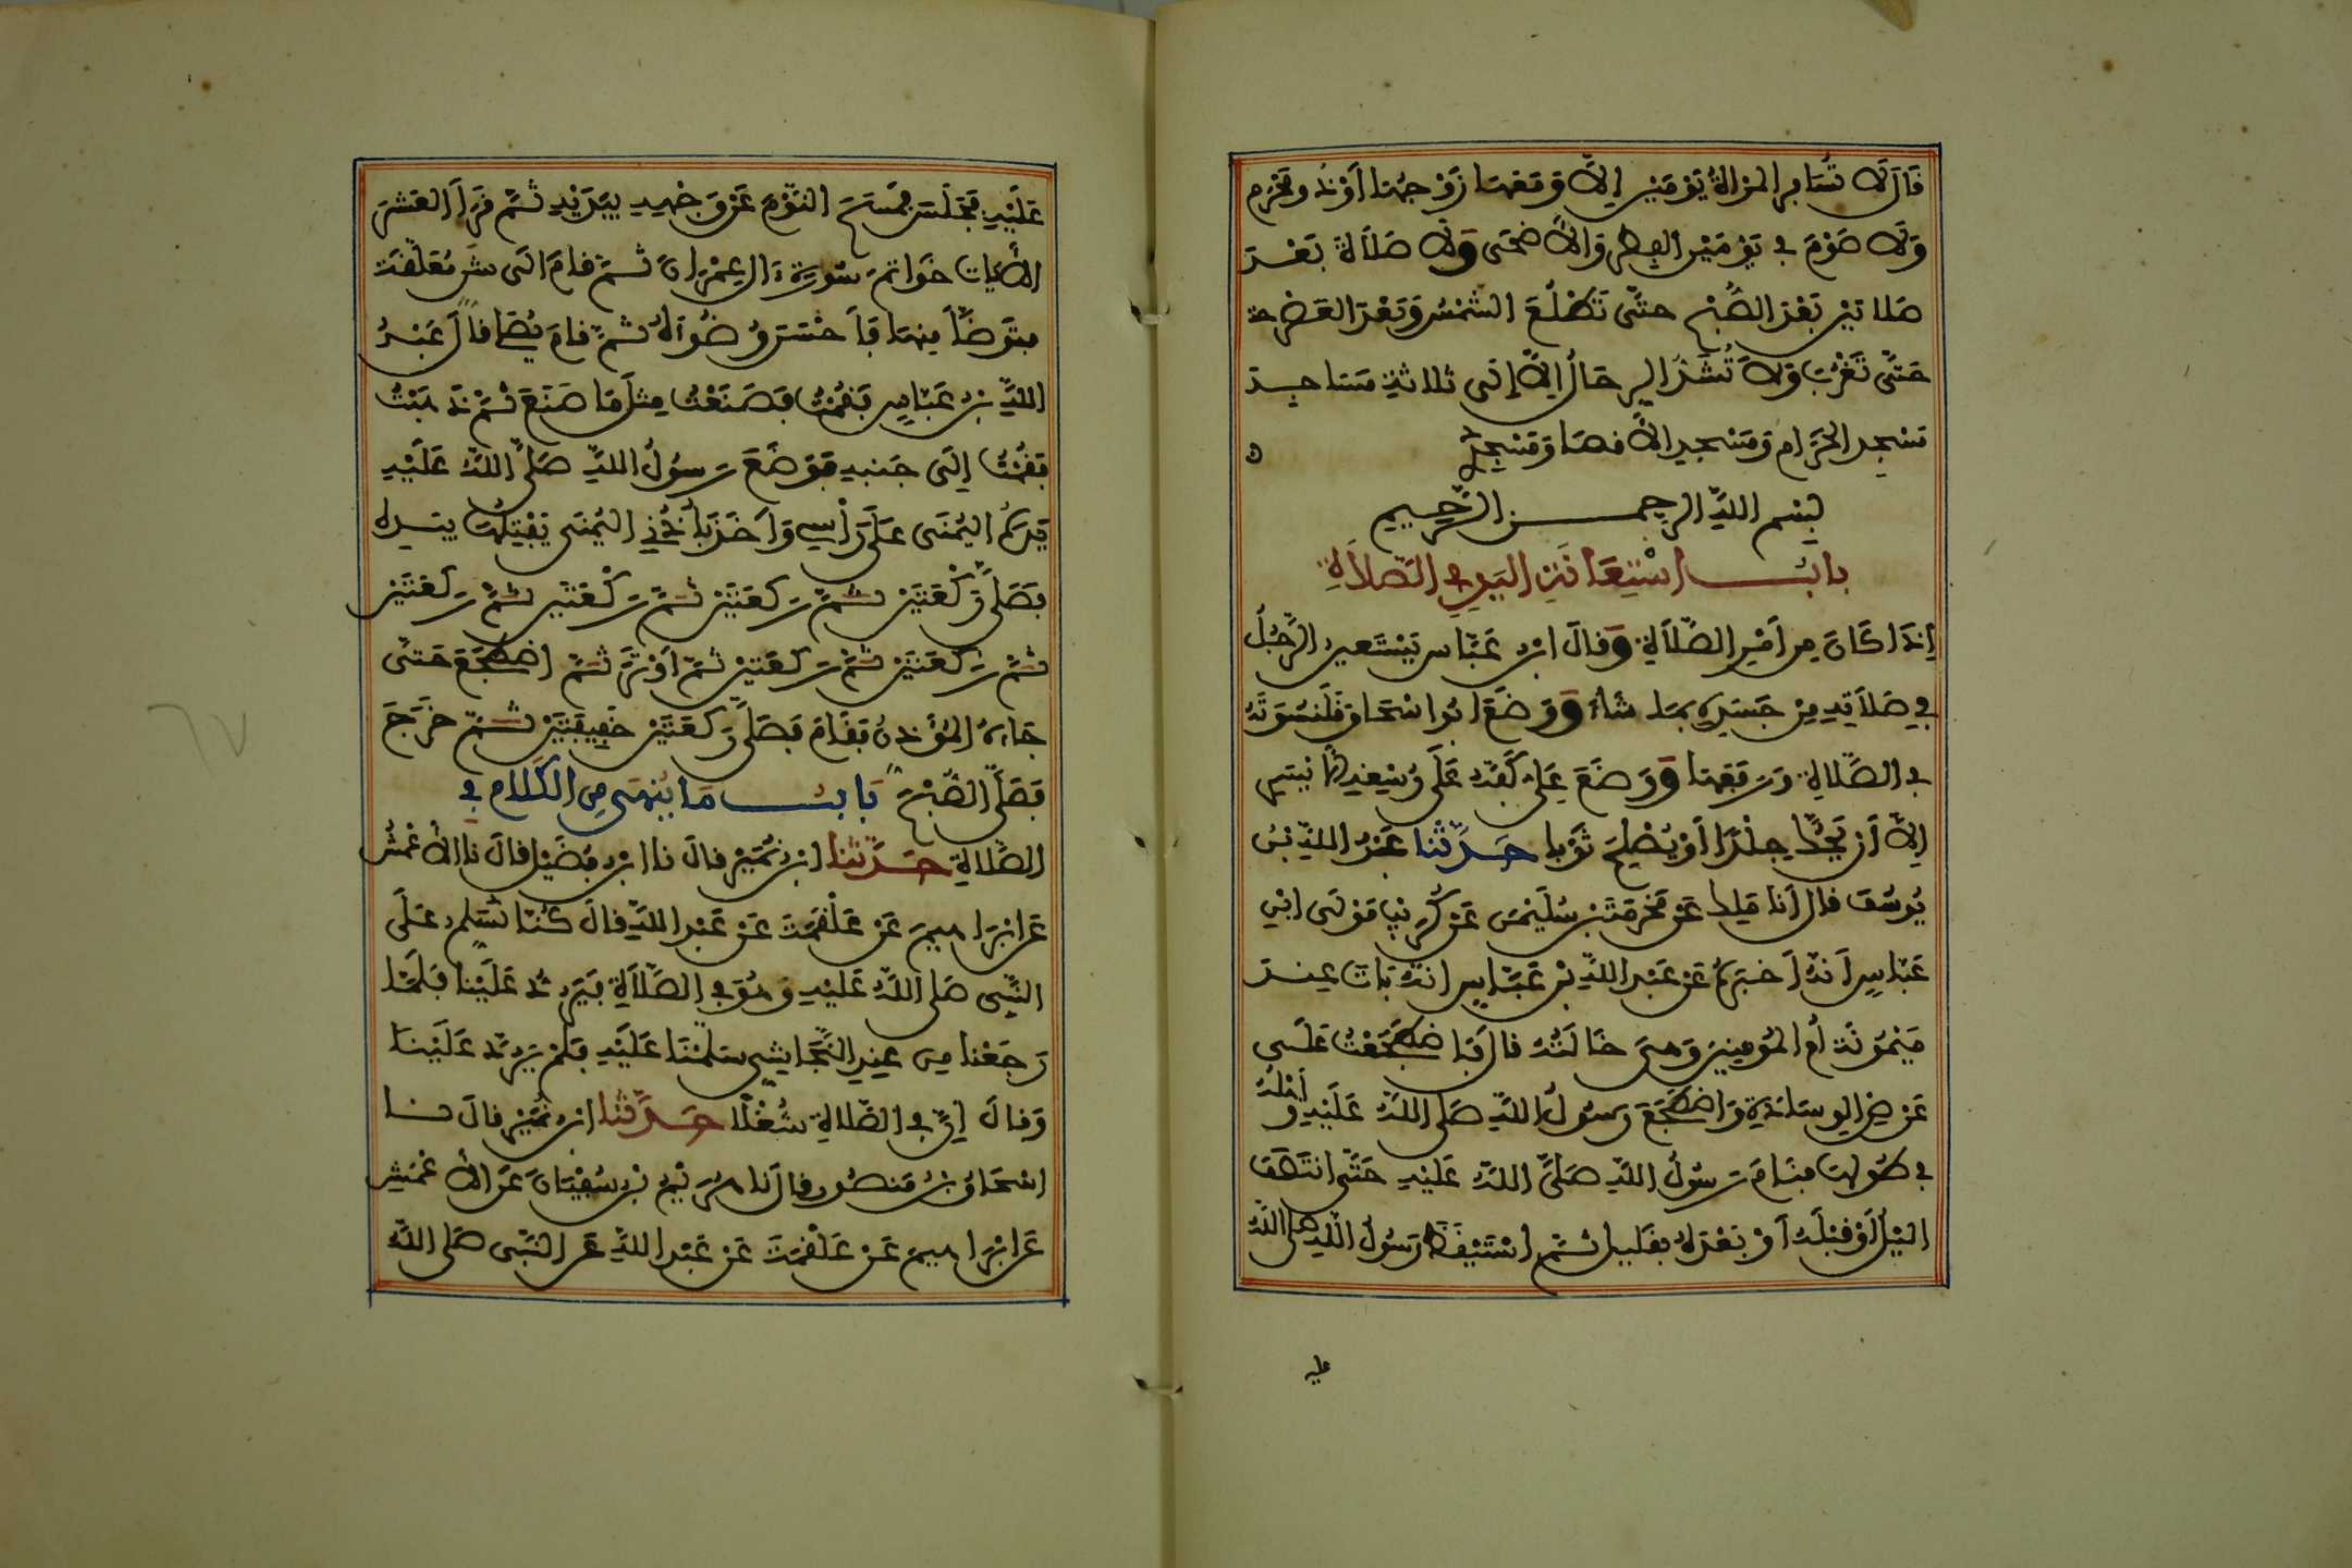 قَالَ لَا تُسَافِرِ الْمَرْأَةُ يَوْمَيْنِ إِلَّا وَمَعَهَا زَوْجُهَا أَوْ ذُو مَحْرَمٍ
وَلَا صَوْمَ فِي يَوْمَيْنِ الْفِطْرِ وَالْأَضْحَى وَلَا صَلَاةَ بَعْدَ
صَلَاتَيْنِ بَعْدَ الصُّبْحِ حَتَّى تَطْلُعَ الشَّمْسُ وَبَعْدَ الْعَصْرِ
حَتَّى تَغْرُبَ وَلَا تُشَدُّ الرِّحَالُ إِلَّا إِلَى ثَلَاثَةِ مَسَاجِدَ
مَسْجِدِ الْحَرَامِ وَمَسْجِدِ الْأَقْصَا وَمَسْجِدِي
بِسْمِ اللَّهِ الرَّحْمَنِ الرَّحِيمِ
بَابُ اسْتِعَانَةِ الْيَدِ فِي الصَّلَاةِ
إِذَا كَانَ مِنْ أَمْرِ الصَّلَاةِ وَقَالَ ابْنُ عَبَّاسٍ يَسْتَعِينُ الرَّجُلُ
فِي صَلَاتِهِ مِنْ جَسَدِهِ بِمَا شَاءَ وَوَضَعَ أَبُو اسْحَاقَ قَلَنْسُوَتَهُ
فِي الصَّلَاةِ وَرَفَعَهَا وَوَضَعَ عَلِيٌّ كَفَّهُ عَلَى رُسْغِهِ الْأَيْسَرِ
إِلَّا أَنْ يَحُكَّ جِلْدًا أَوْ يُصْلِحَ ثَوْبًا حَدَّثَنَا عَبْدُ اللَّهِ بْنُ
يُوسُفَ قَالَ أَنَا مَلِكٌ عَنْ مَخْرَمَةَ بْنِ سُلَيْمَنَ عَنْ كُرَيْبٍ مَوْلَى ابْنِ
عَبَّاسٍ أَنَّهُ أَخْبَرَهُ عَنْ عَبْدِ اللَّهِ بْنِ عَبَّاسٍ أَنَّهُ بَاتَ عِنْدَ
مَيْمُونَةَ أُمِّ الْمُومِنِينَ وَهِيَ خَالَتُهُ قَالَ فَاضْطَجَعْتُ عَلَى
عَرْضِ الْوِسَادَةِ وَاضْطَجَعَ رَسُولُ اللَّهِ صَلَّى اللَّهُ عَلَيْهِ وَأَهْلُهُ
فِي طُولِهَا فَنَامَ رَسُولُ اللَّهِ صَلَّى اللَّهُ عَلَيْهِ حَتَّى انْتَصَفَ
الَّيْلُ أَوْ قَبْلَهُ أَوْ بَعْدَهُ بِقَلِيلٍ ثُمَّ اسْتَيْقَظَ رَسُولُ اللَّهِ صَلَّى اللَّهُ
عليه
عَلَيْهِ فَجَلَسَ فَمَسَحَ النَّوْمَ عَنْ وَجْهِهِ بِيَدَيْهِ ثُمَّ قَرَأَ الْعَشْرَ
الْأَيَاتِ خَوَاتِمَ سُورَةِ ءَالِ عِمْرَانَ ثُمَّ قَامَ الَى شَنٍّ مُعَلَّقَةٍ
فَتَوَضَّأَ مِنْهَا فَأَحْسَنَ وُضُوءَهُ ثُمَّ قَامَ يُصَلِّي قَالَ عَبْدُ
اللَّهِ بْنُ عَبَّاسٍ فَقُمْتُ فَصَنَعْتُ مِثْلَ مَا صَنَعَ ثُمَّ ذَهَبْتُ
فَقُمْتُ إِلَى جَنْبِهِ فَوَضَعَ رَسُولُ اللَّهِ صَلَّى اللَّهُ عَلَيْهِ
يَدَهُ الْيُمْنَى عَلَى رَأْسِي وَأَخَذَ بِأُذُنِي الْيُمْنَى يَفْتِلُهَا بِيَدِهِ
فَصَلَّى رَكْعَتَيْنِ ثُمَّ رَكْعَتَيْنِ ثُمَّ رَكْعَتَيْنِ ثُمَّ رَكْعَتَيْنِ
ثُمَّ رَكْعَتَيْنِ ثُمَّ رَكْعَتَيْنِ ثُمَّ أَوْتَرَ ثُمَّ اضْطَجَعَ حَتَّى
جَاءَهُ الْمُؤَذِّنُ فَقَامَ فَصَلَّى رَكْعَتَيْنِ خَفِيفَتَيْنِ ثُمَّ خَرَجَ
فَصَلَّى الصُّبْحَ بَابُ مَا يُنْهَى مِنَ الْكَلَامِ فِي
الصَّلَاةِ حَدَّثَنَا ابْنُ نُمَيْرٍ قَالَ نَا ابْنُ فُضَيْلٍ قَالَ نَا الْأَعْمَشُ
عَنْ ابْرَاهِيمَ عَنْ عَلْقَمَةَ عَنْ عَبْدِ اللَّهِ قَالَ كُنَّا نُسَلِّمُ عَلَى
النَّبِيِّ صَلَّى اللَّهُ عَلَيْهِ وَهُوَ فِي الصَّلَاةِ فَيَرُدُّ عَلَيْنَا فَلَمَّا
رَجَعْنَا مِنْ عِنْدِ النَّجَاشِي سَلَّمْنَا عَلَيْهِ فَلَمْ يَرُدَّ عَلَيْنَا
وَقَالَ إِنَّ فِي الصَّلَاةِ شُغْلًا حَدَّثَنَا ابْنُ نُمَيْرٍ قَالَ نَا
اسْحَاقُ بْنُ مَنْصُورٍ قَالَ نَا هُرَيْمُ بْنُ سُفْيَانَ عَنِ الْأَعْمَشِ
عَنْ ابْرَاهِيمَ عَنْ عَلْقَمَةَ عَنْ عَبْدِ اللَّهِ عَنِ النَّبِيِّ صَلَّى اللَّهُ